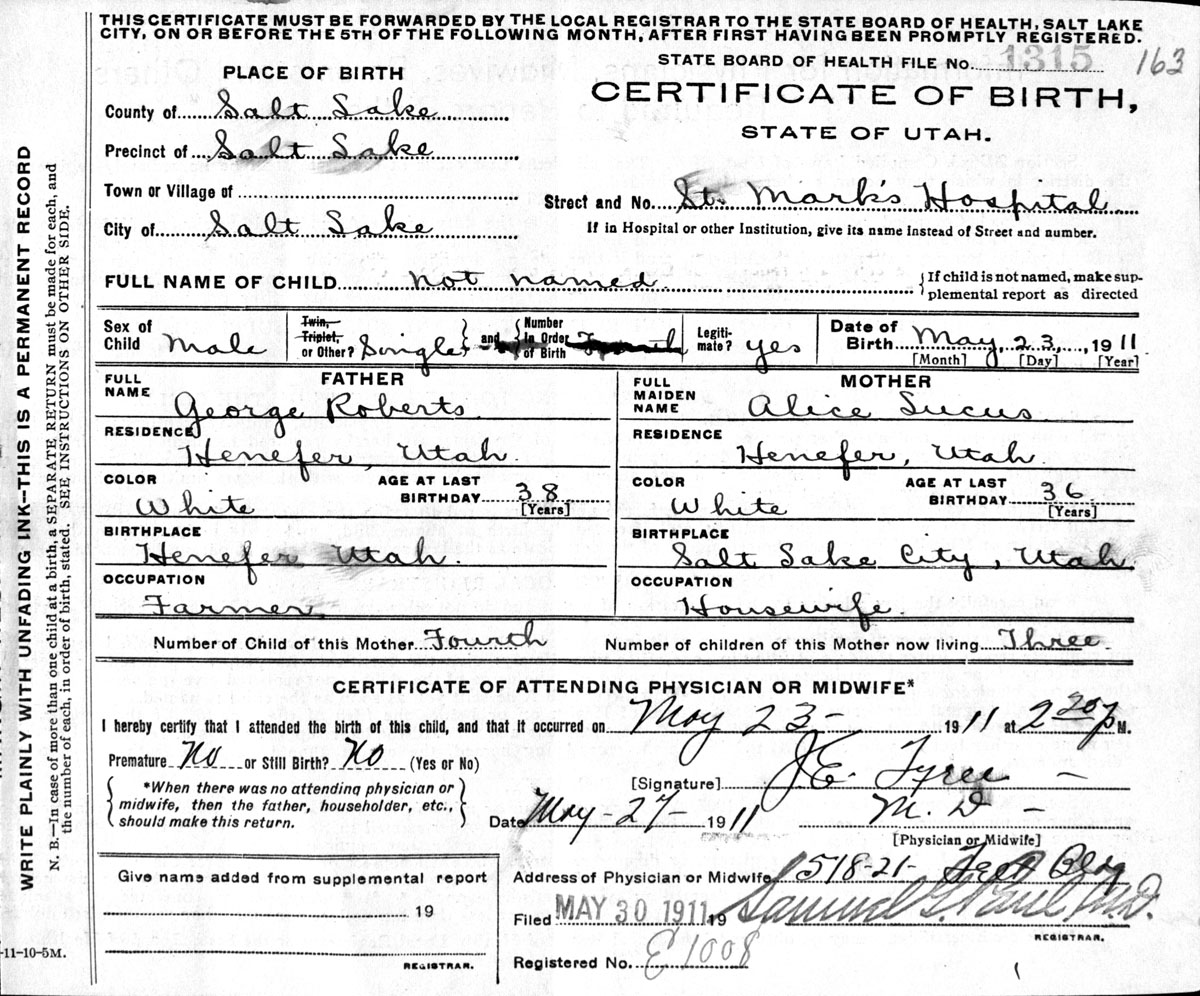 THIS CERTIFICATE MUST BE FORWARDED BY THE LOCAL REGISTRAR TO THE STATE BOARD OF HEALTH, SALT LAKE
CITY, ON OR BEFORE THE 5TH OF THE FOLLOWING MONTH, AFTER FIRST HAVING BEEN PROMPTLY REGISTERED.
STATE BOARD OF HEALTH FILE No. 1315 163
PLACE OF BIRTH
CERTIFICATE OF BIRTH,
STATE OF UTAH.
County of Salt Lake
Precinct of Salt Lake
Town or Village of
Street and No. St. Mark's Hospital
City of Salt Lake
If in Hospital or other Institution, give its name instead of Street and number.
FULL NAME OF CHILD not named
{If child is not named, make sup-
plemental report as directed
Sex of Child Male
Twin, Triplet, or Other? Single
and
Number in Order of Birth Fourth
Legiti-mate? yes
Date of Birth May 23, 1911
[Month] [Day] [Year]
FATHER
FULL NAME George Roberts
RESIDENCE Henefer, Utah.
COLOR White
AGE AT LAST BIRTHDAY 38 [Years]
BIRTHPLACE Henefer Utah.
OCCUPATION Farmer
MOTHER
FULL MAIDEN NAME Alice Lucus
RESIDENCE Henefer, Utah.
COLOR White
AGE AT LAST BIRTHDAY 36 [Years]
BIRTHPLACE Salt Lake City, Utah.
OCCUPATION Housewife.
Number of Child of this Mother Fourth
Number of children of this Mother now living Three
CERTIFICATE OF ATTENDING PHYSICIAN OR MIDWIFE*
I hereby certify that I attended the birth of this child, and that it occurred on May 23- 1911 at 2 20 P M.
Premature No or Still Birth? No (Yes or No)
*When there was no attending physician or
midwife, then the father, householder, etc.,
should make this return.
[Signature] J E. Tyree
Date May-27- 1911
M. D
[Physician or Midwife]
Give name added from supplemental report
19
REGISTRAR.
Address of Physician or Midwife 1518-21-
Filed MAY 30 1911 19 Samuel G. Paul, M.D.
REGISTRAR.
Registered No. E1008
WRITE PLAINLY WITH UNFADING INK--THIS IS A PERMANENT RECORD
N. B.--In case of more than one child at a birth, a SEPARATE RETURN must be made for each, and
the number of each, in order of birth, stated. SEE INSTRUCTIONS ON OTHER SIDE.
-11-10-5M.